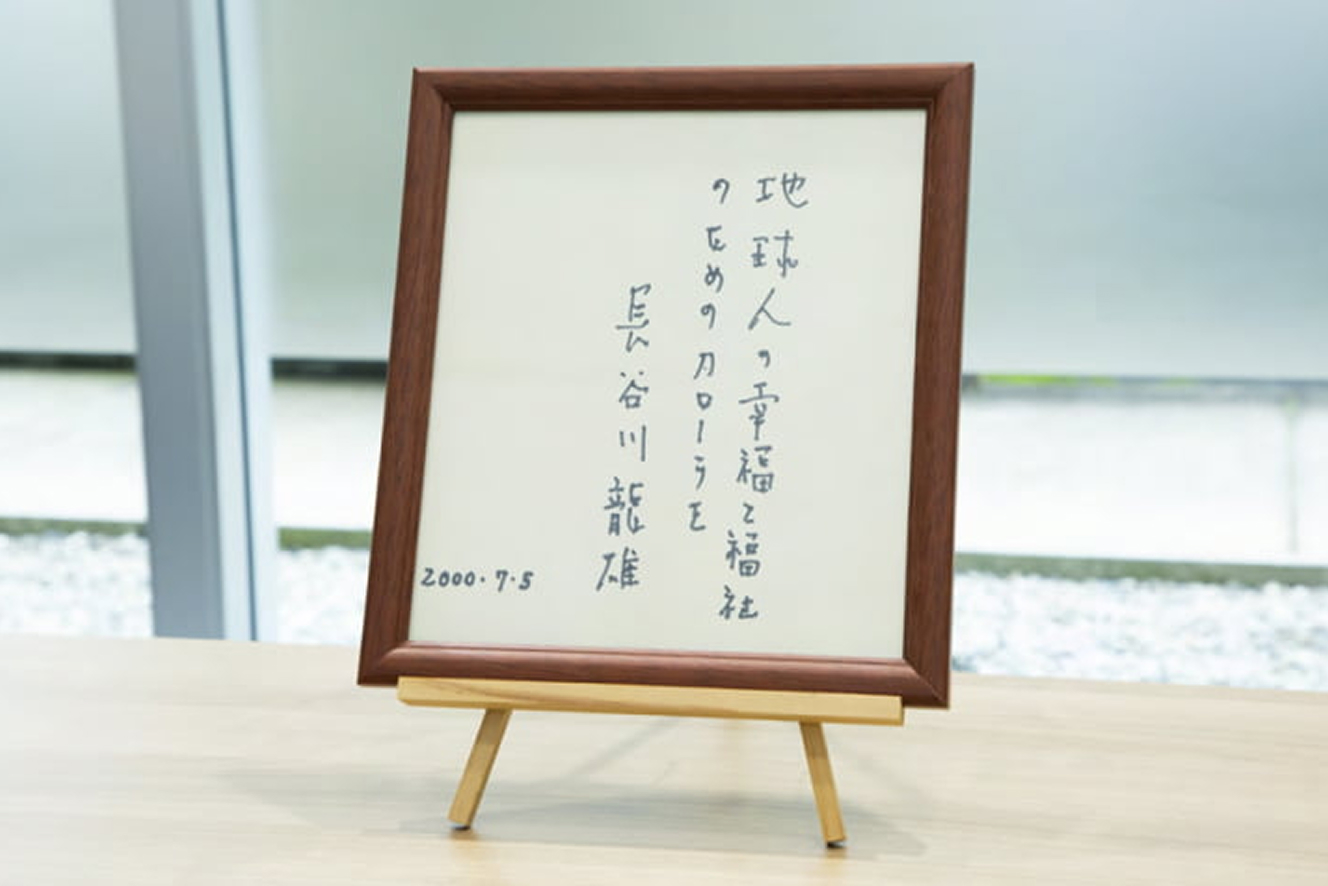 地球人の幸福と福祉
のためのカローラを
長谷川龍雄
2000・7・5